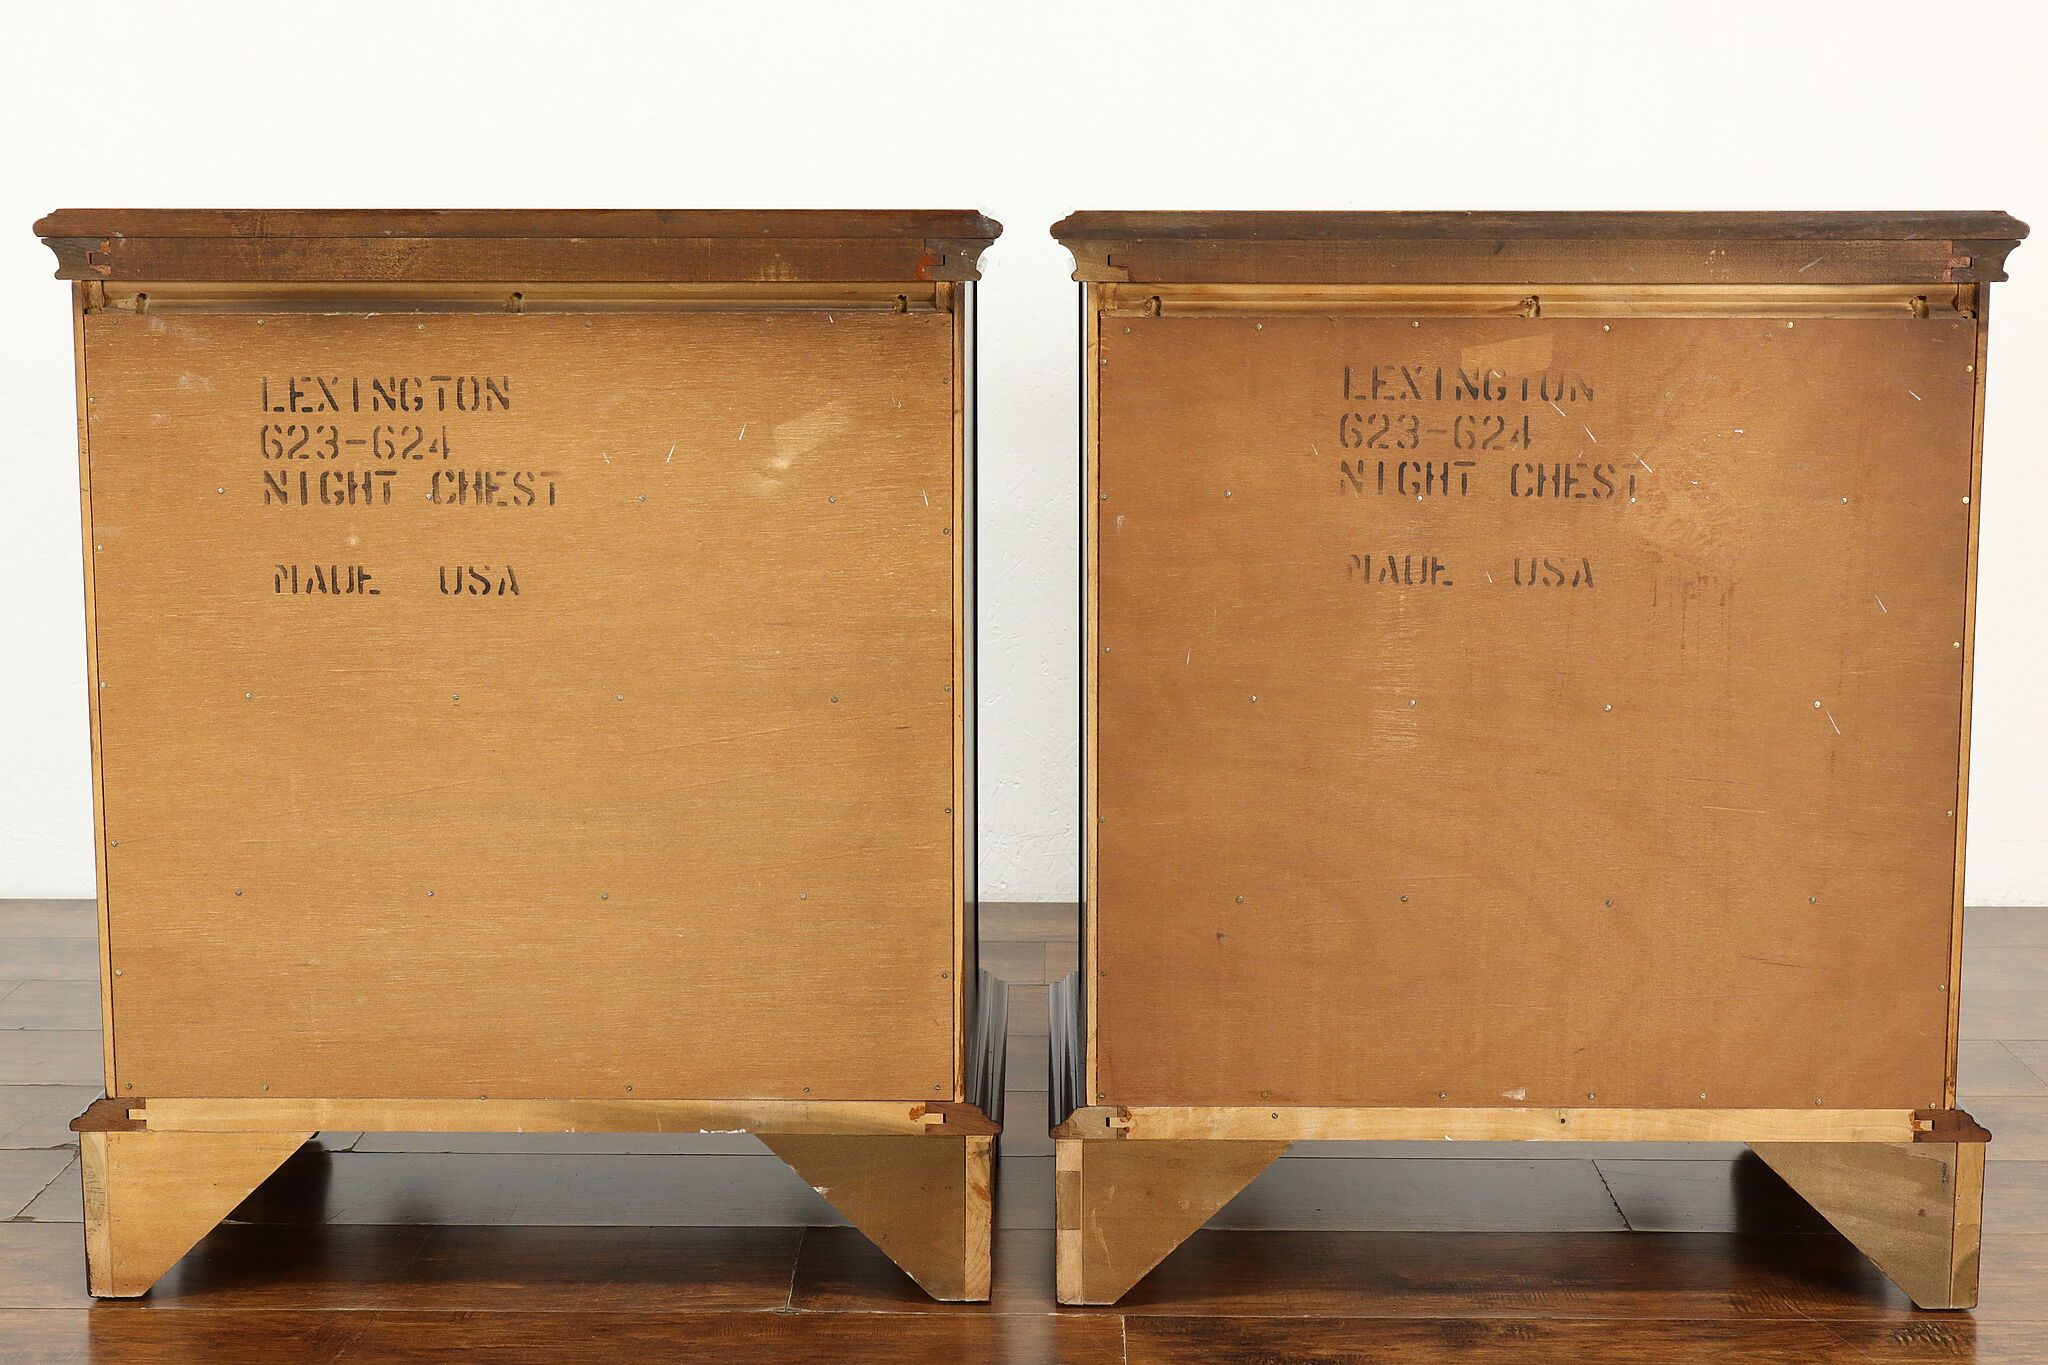 LEXINGTON
623-624
NIGHT CHEST
MADE USA
LEXINGTON
623-624
NIGHT CHEST
MADE USA